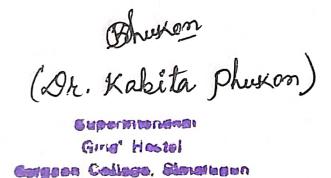 Phukon
(Dr. Kabita Phukon)
Superintendent
Girls' Hostel
College, Simaluguri